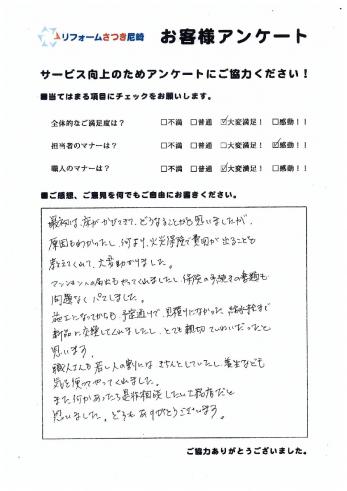 リフォームさつき尼崎 お客様アンケート
サービス向上のためアンケートにご協力ください！
■当てはまる項目にチェックをお願いします。
全体的なご満足度は？ □不満 □普通 ☑大変満足！ □感動！！
担当者のマナーは？ □不満 □普通 □大変満足！ ☑感動！！
職人のマナーは？ □不満 □普通 ☑大変満足！ □感動！！
■ご感想、ご意見を何でもご自由にお書きください。
最初は、床がかびてきて、どうなることかと思いましたが、
原因もわかったし、何より、火災保険で費用が出ることも
教えてくれて、大変助かりました。
マンションへの届出もやってくれましたし、保険の手続きの書類も
問題なくパスしました。
施工になってからも、予定通りで、見積りになかった給水栓まで
新品に交換してくれましたし、とても親切ていねいだったと
思います。
職人さんも若い人の割にはきちんとしていたし、養生なども
気を使ってやってくれました。
また何かあったら是非相談したい工務店だと
思いました。どうもありがとうございます。
ご協力ありがとうございました。